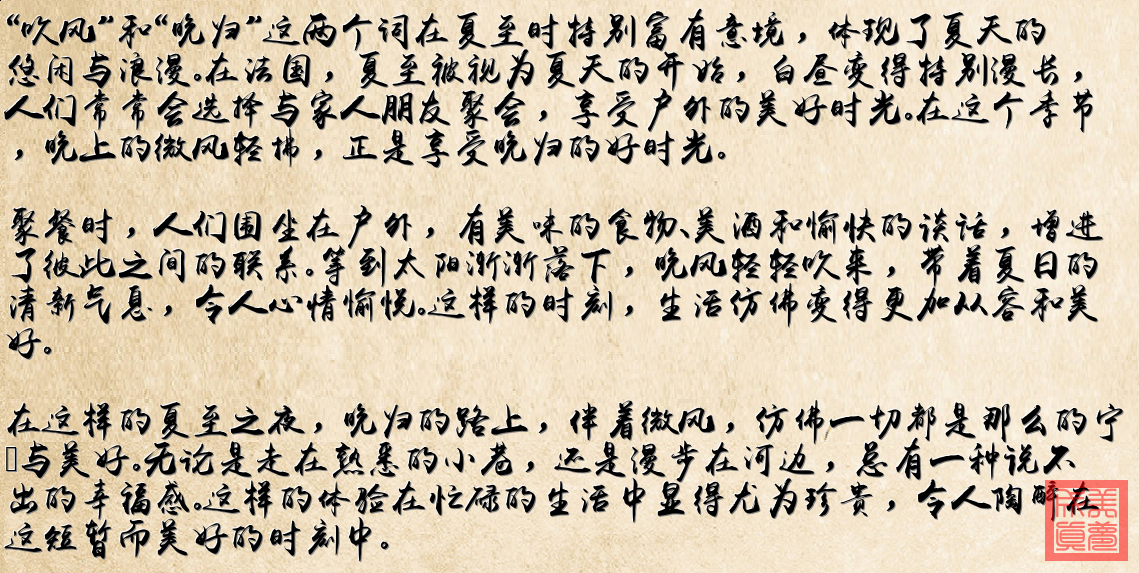 “吹风”和“晚归”这两个词在夏至时特别富有意境，体现了夏天的
悠闲与浪漫。在法国，夏至被视为夏天的开始，白昼变得特别漫长，
人们常常会选择与家人朋友聚会，享受户外的美好时光。在这个季节
，晚上的微风轻拂，正是享受晚归的好时光。
聚餐时，人们围坐在户外，有美味的食物、美酒和愉快的谈话，增进
了彼此之间的联系。等到太阳渐渐落下，晚风轻轻吹来，带着夏日的
清新气息，令人心情愉悦。这样的时刻，生活仿佛变得更加从容和美
好。
在这样的夏至之夜，晚归的路上，伴着微风，仿佛一切都是那么的宁
与美好。无论是走在熟悉的小巷，还是漫步在河边，总有一种说不
出的幸福感。这样的体验在忙碌的生活中显得尤为珍贵，令人陶醉在
这短暂而美好的时刻中。